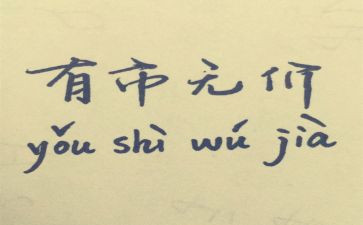 有市无价
yǒu shì wú jià